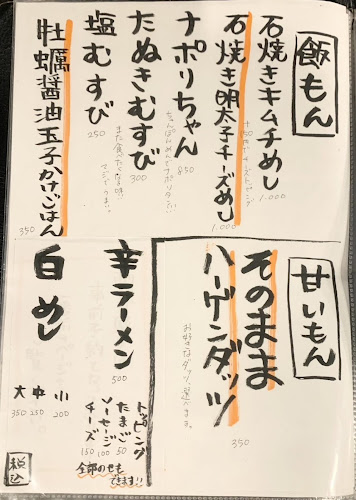 飯もん
石焼きキムチめし
1.000
+150でチーズトッピング
石焼き明太子チーズめし
1.000
ナポリちゃん
850
ちゃんぽんめんでナポリタン!!
たぬきむすび
300
また食べたくなる味!!
マジでうまい。
塩むすび
250
牡蠣醤油玉子かけごはん
350
甘いもん
そのまま
ハーゲンダッツ
お好きなダッツ、選べます。
350
辛ラーメン
500
トッピング
たまご 50
ソーセージ 100
チーズ 150
全部のせも
できます!!
白めし
小 200
中 250
大 350
税込